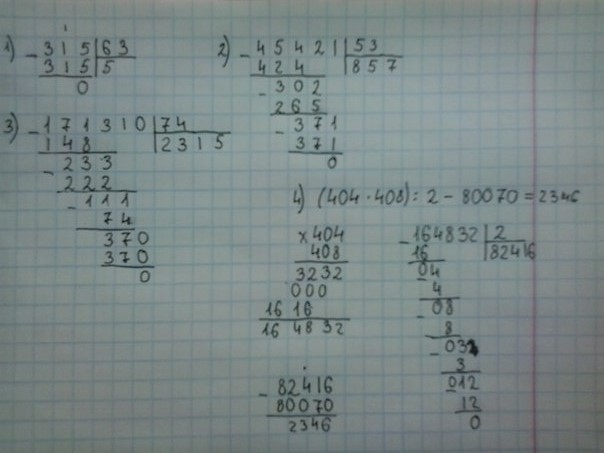 1) - 315 | 63
315 | 5
0
2) - 45421 | 53
424 | 857
- 302
265
- 371
371
0
3) - 171310 | 74
148 | 2315
- 233
222
- 111
74
370
370
0
4) (404 · 408) : 2 - 80070 = 2346
× 404
408
3232
000
1616
164832
- 164832 | 2
16 | 82416
- 04
4
- 08
8
- 03
3
- 012
12
0
- 82416
80070
2346